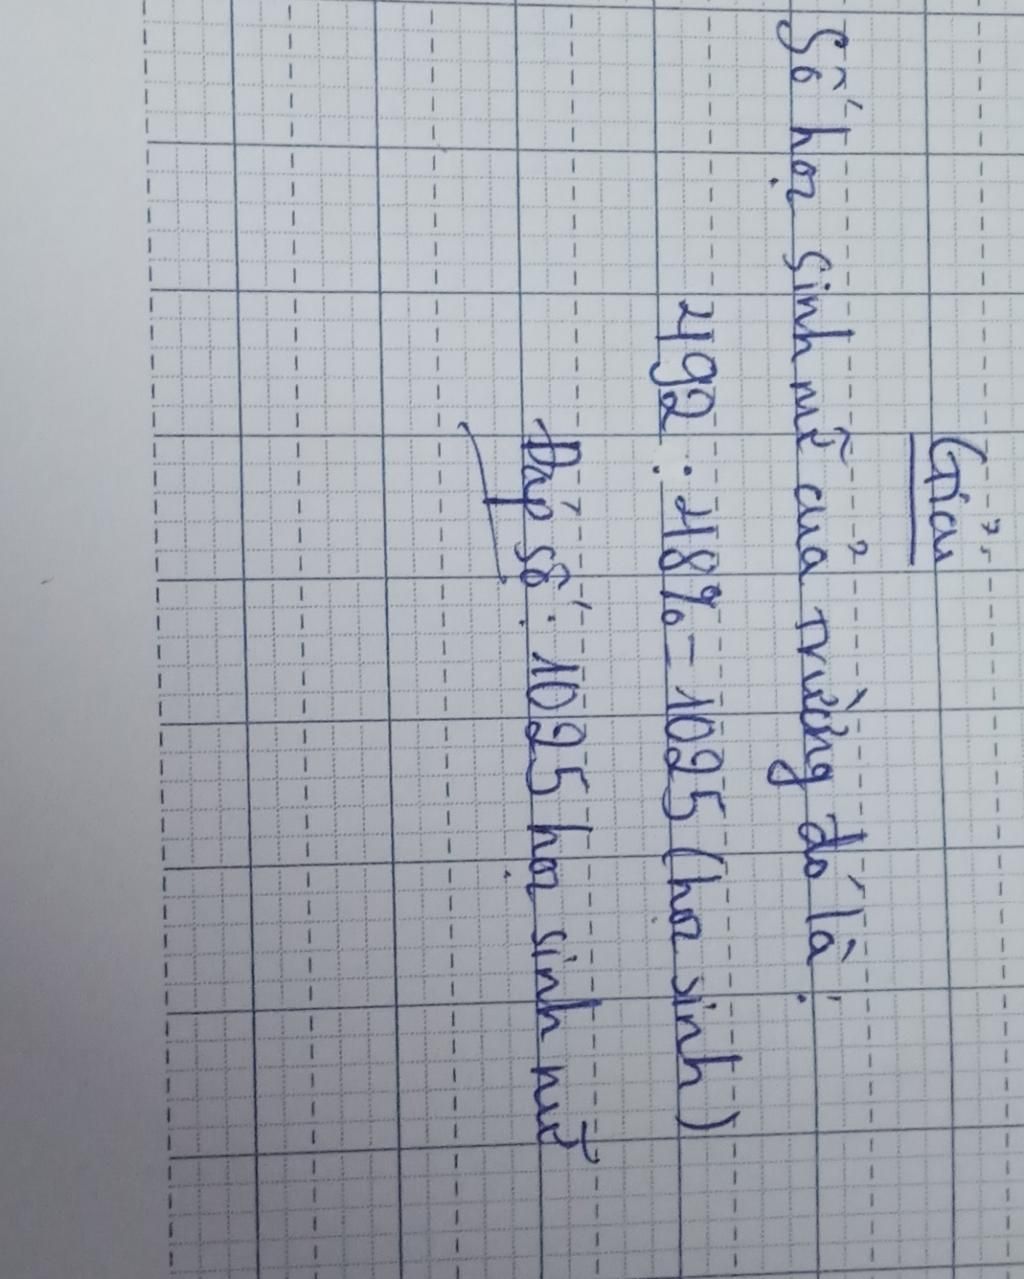 Giải
Số học sinh nữ của trường đó là :
492 : 48% = 1025 (học sinh)
Đáp số : 1025 học sinh nữ